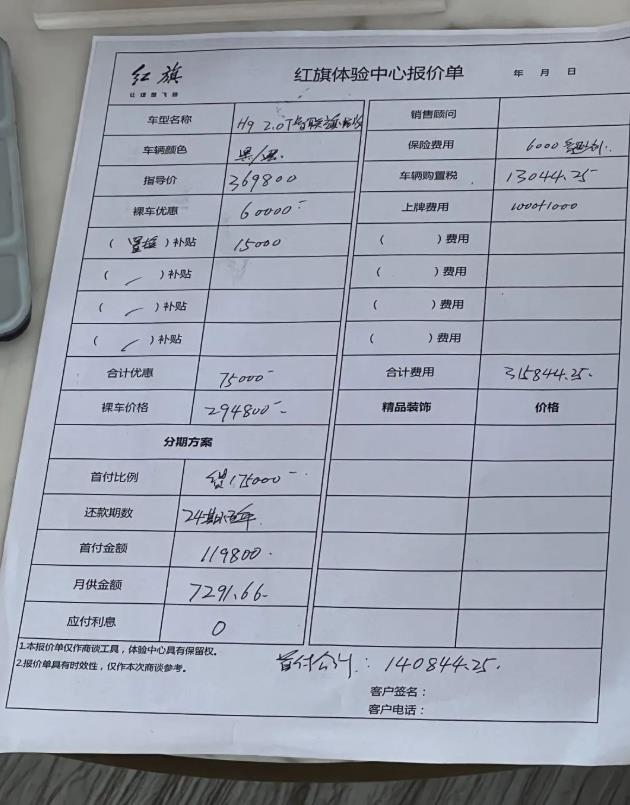 红旗
让理想飞扬
红旗体验中心报价单 年 月 日
车型名称 H9 2.0T智联旗 销售顾问
车辆颜色 黑/黑 保险费用 6000
指导价 369800 车辆购置税 13044.25
裸车优惠 60000- 上牌费用 1000+1000
(置换)补贴 15000 ( )费用
( )补贴 ( )费用
( )补贴 ( )费用
( )补贴 ( )费用
合计优惠 75000- 合计费用 315844.25.
裸车价格 294800- 精品装饰 价格
分期方案
首付比例 贷175000-
还款期数 24期
首付金额 119800.
月供金额 7291.66-
应付利息 0
1.本报价单仅作商谈工具，体验中心具有保留权。
2.报价单具有时效性，仅作本次商谈参考。
首付合计：140844.25.
客户签名：
客户电话：